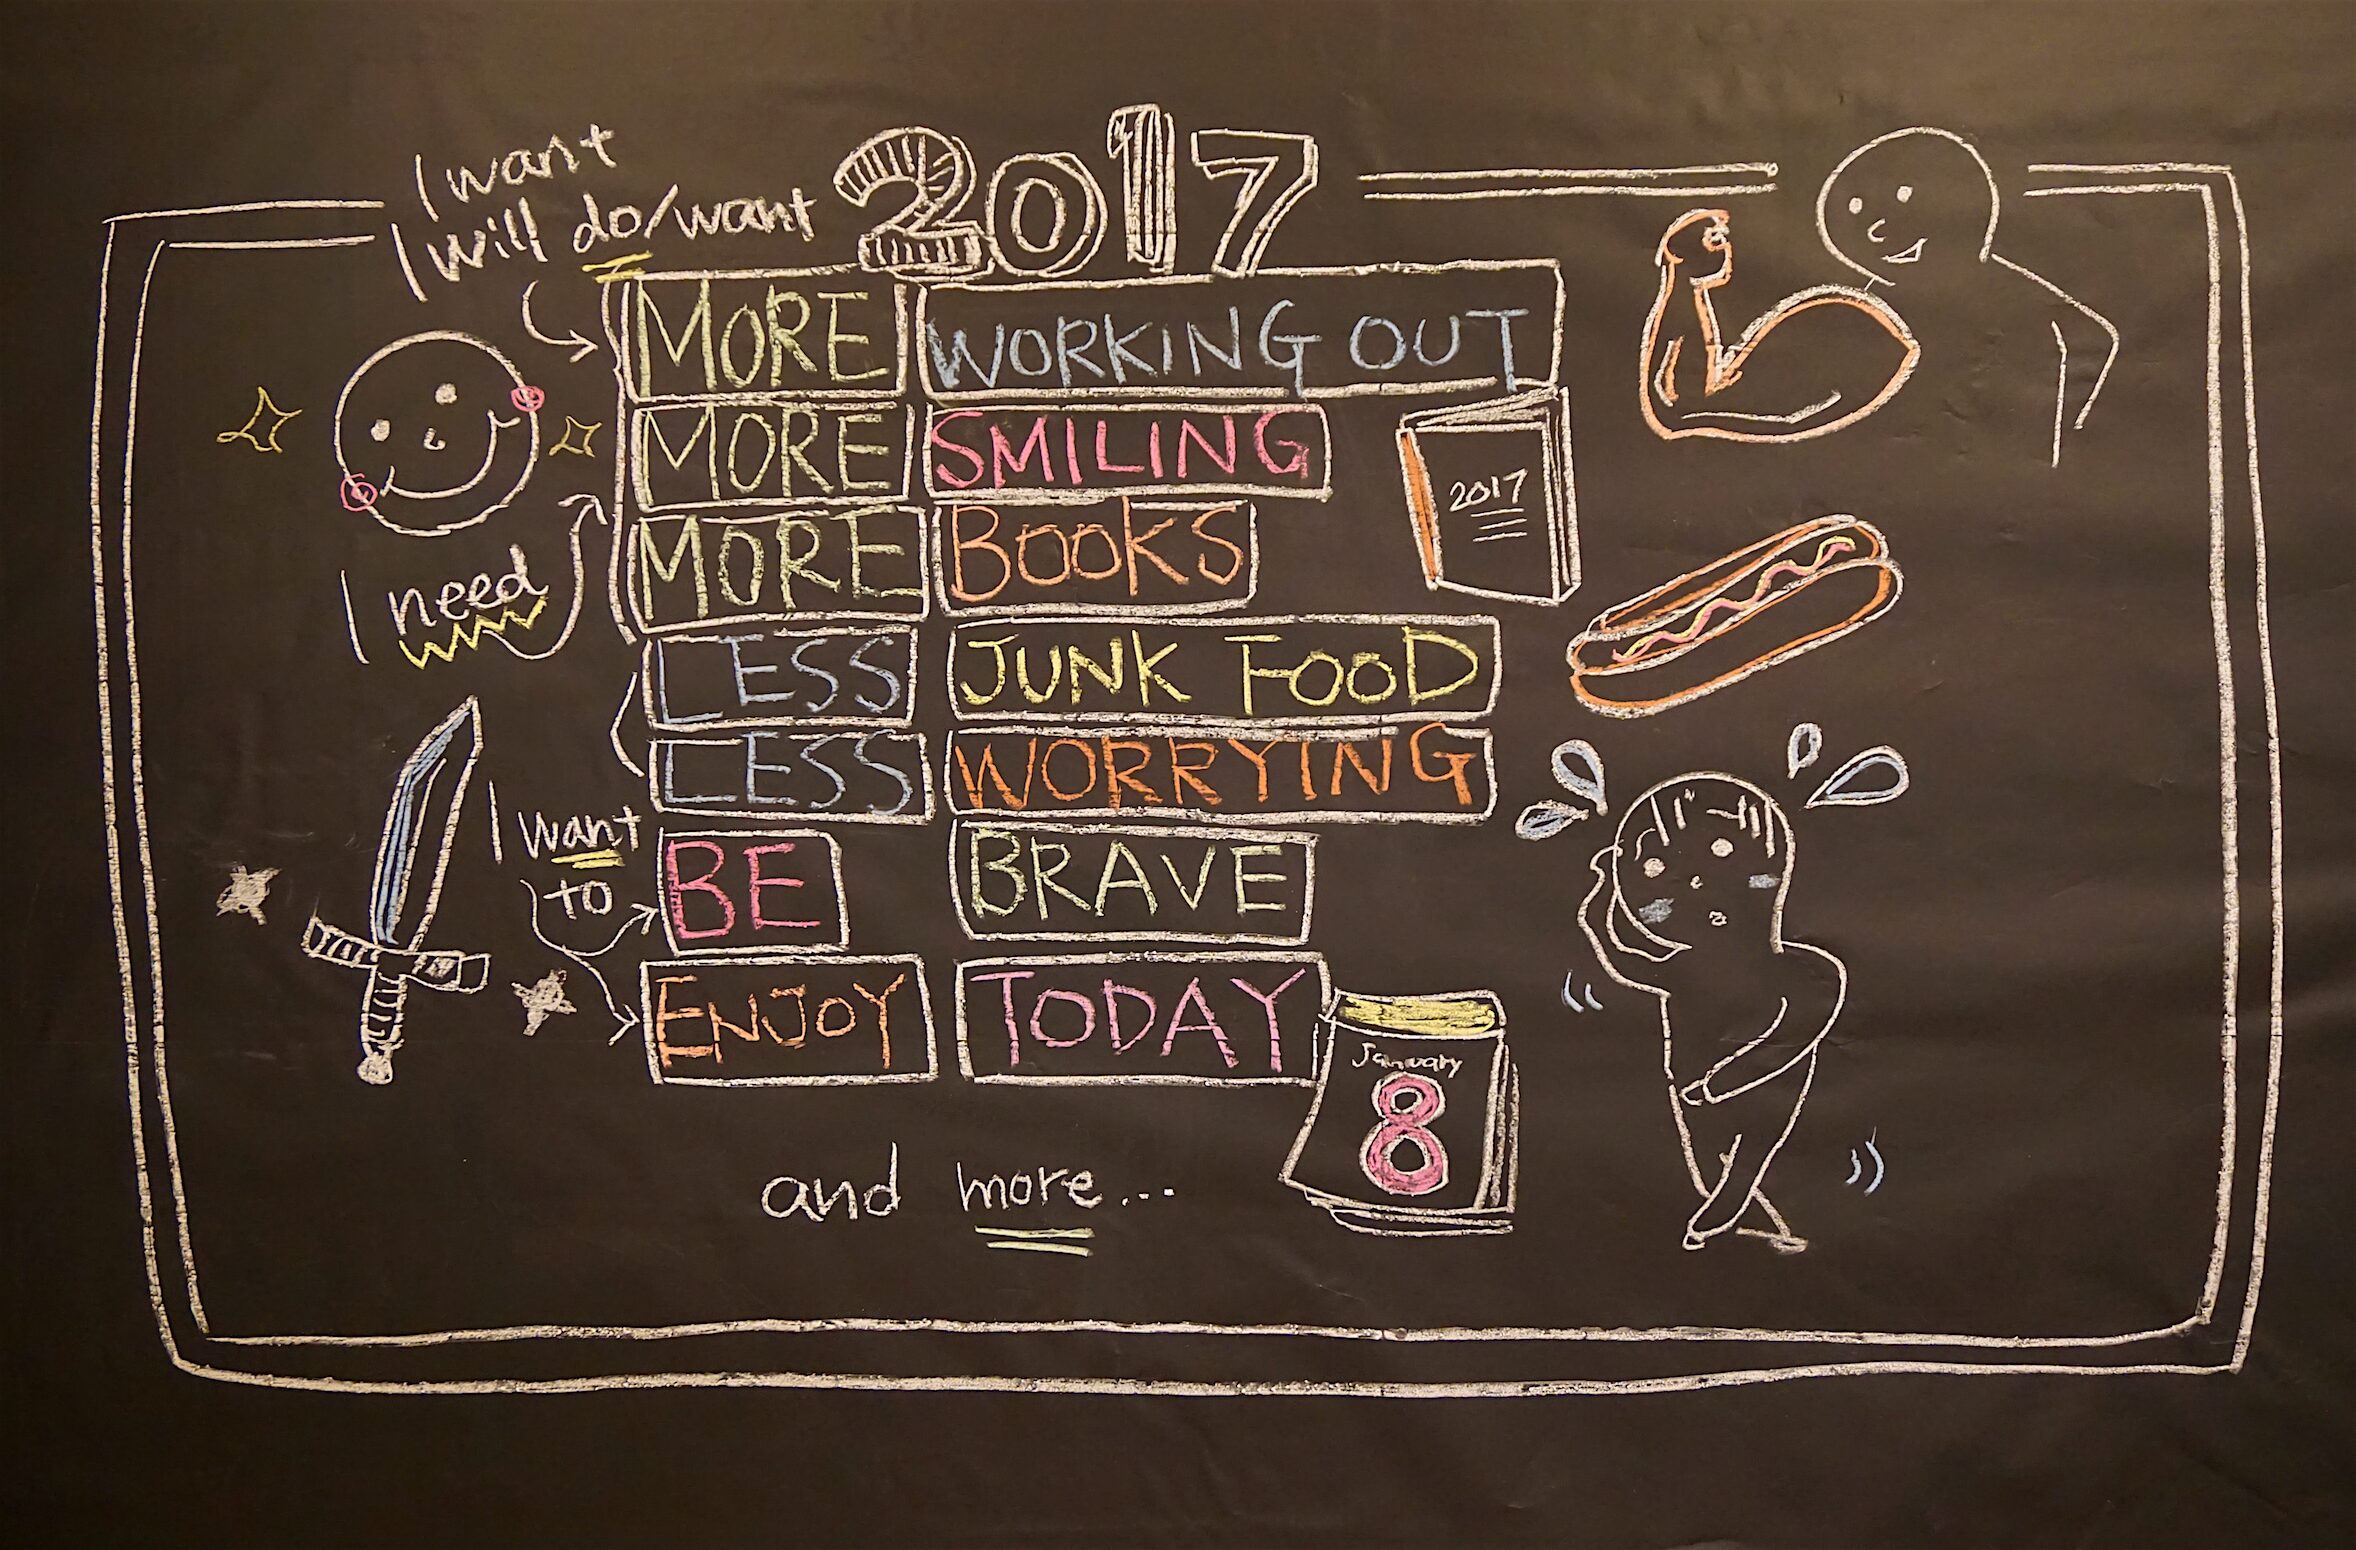 I want
I will do/want
2017
MORE WORKING OUT
MORE SMILING
MORE BOOKS
2017
I need
LESS JUNK FOOD
LESS WORRYING
I want
to
BE BRAVE
ENJOY TODAY
January
8
and more...